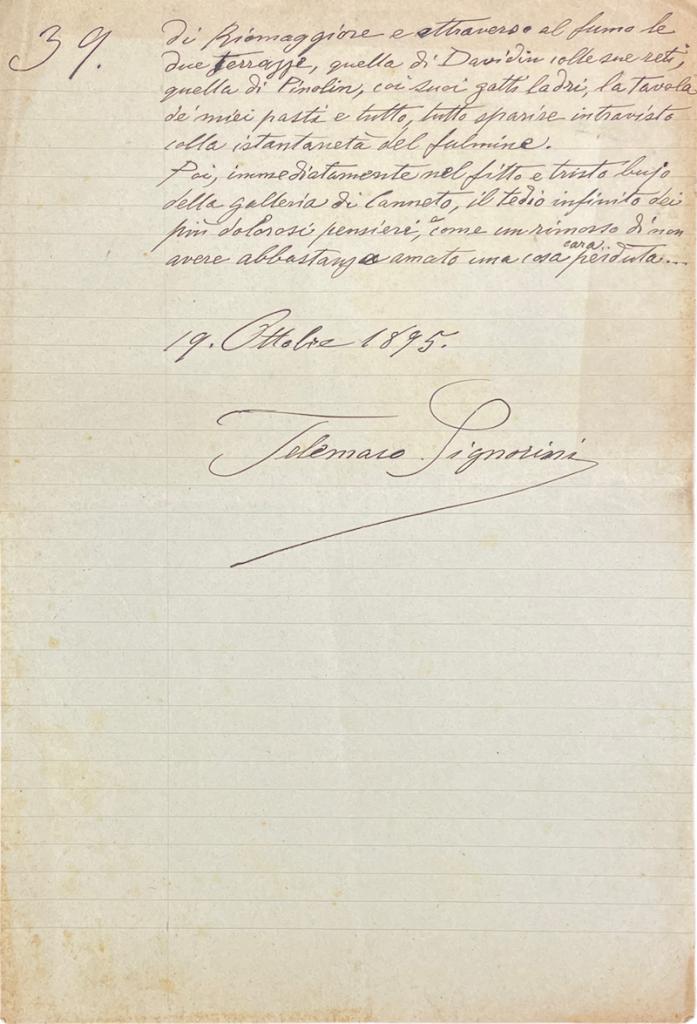 39.
di Riomaggiore e attraverso al fumo le
due terrazze, quella di Davidin colle sue reti,
quella di Pinolin, coi suoi gatti ladri, la tavola
de' miei pasti e tutto, tutto sparire intravisto
colla istantaneità del fulmine.
Poi, immediatamente nel fitto e tristo bujo
della galleria di Canneto, il tedio infinito dei
più dolorosi pensieri, e come un rimosso di non
avere abbastanza amato una cosa cara perduta...
19. Ottobre 1895.
Telemaco Signorini